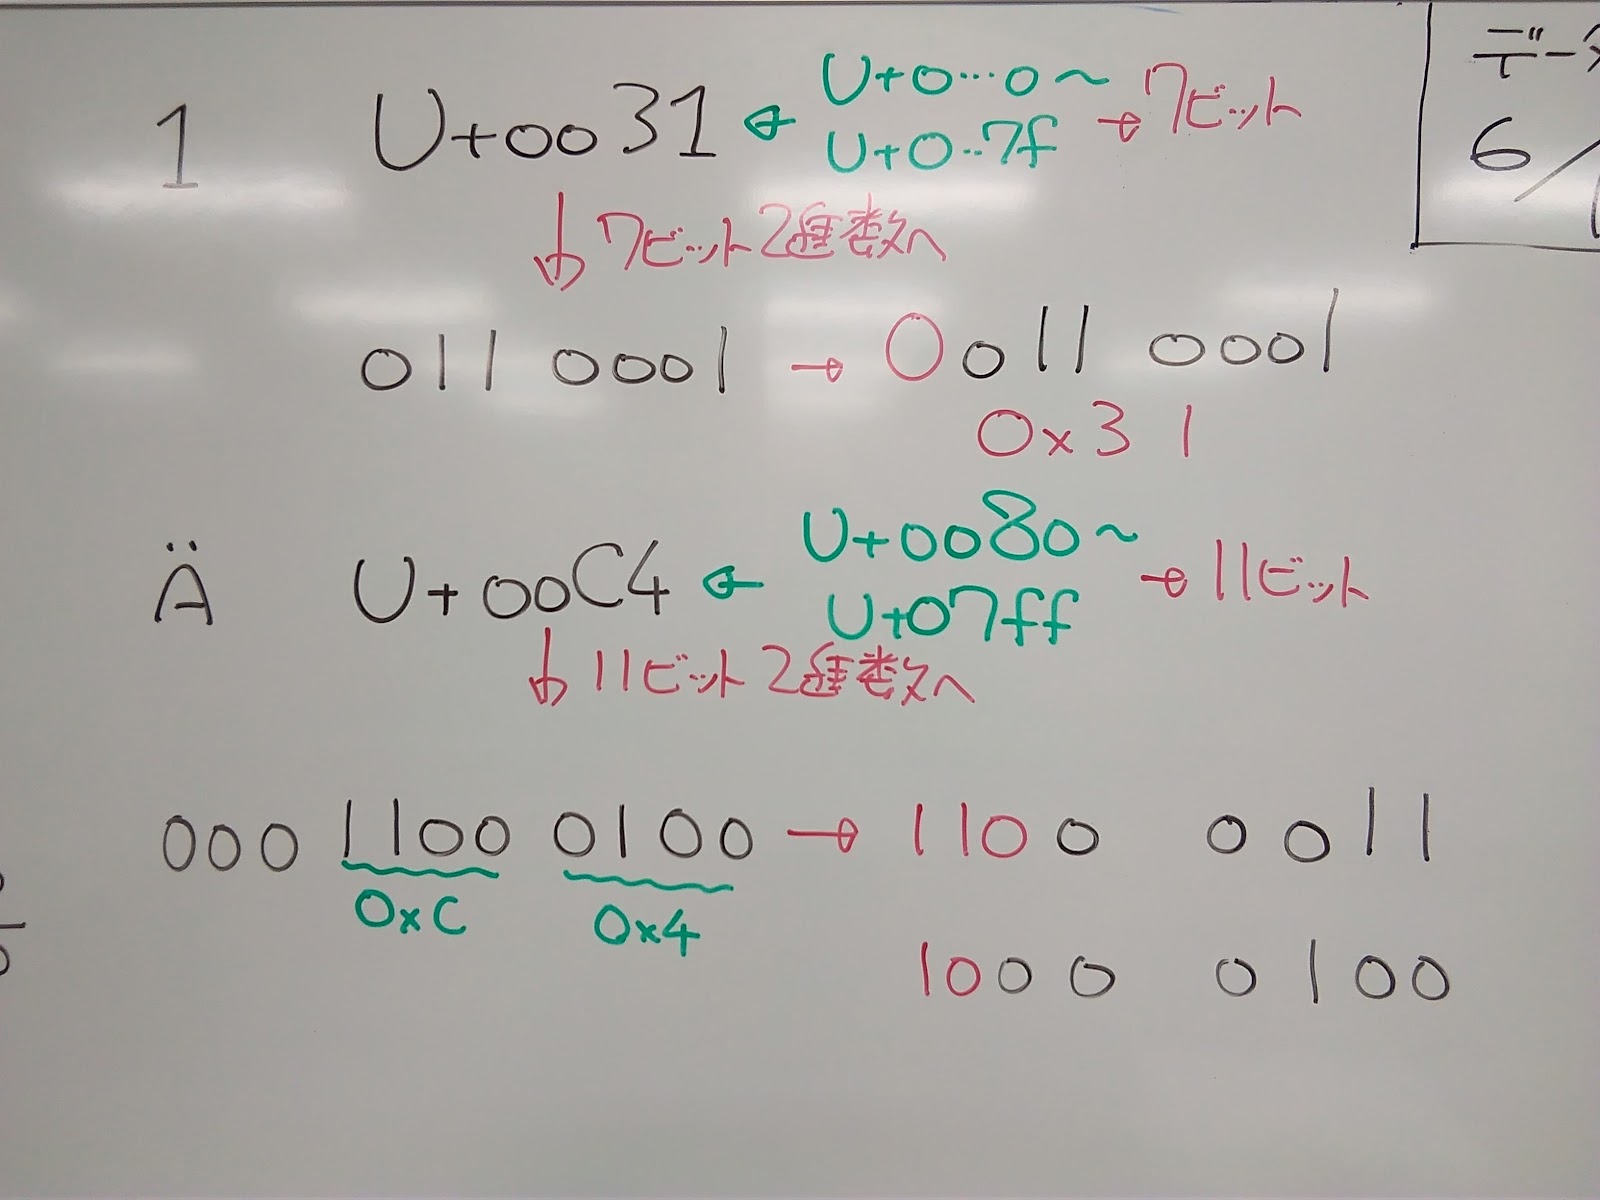 1 U+0031 ← U+0…0～ → 7ビット
U+0..7f
↓ 7ビット2進数へ
011 0001 → 0011 0001
0x31
Ä U+00C4 ← U+0080～ → 11ビット
U+07ff
↓ 11ビット2進数へ
000 1100 0100 → 1100 0011
0xC 0x4
1000 0100
データ
6/